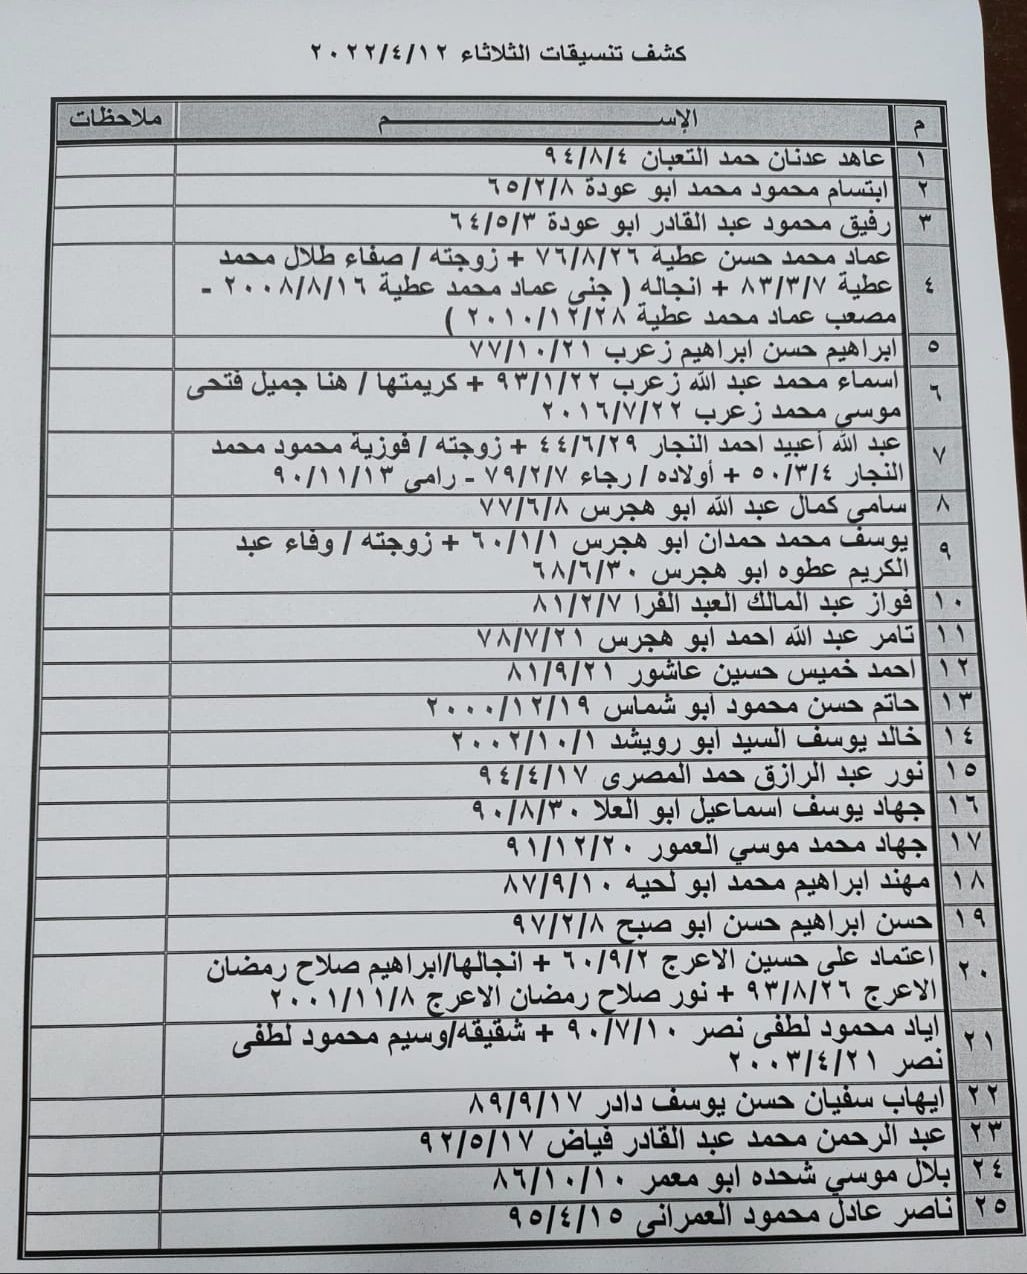 كشف تنسيقات الثلاثاء ٢٠٢٢/٤/١٢
م الإســـم ملاحظات
١ عاهد عدنان حمد التعبان ٩٤/٨/٤
٢ ابتسام محمود محمد ابو عودة ٦٥/٢/٨
٣ رفيق محمود عبد القادر ابو عودة ٦٤/٥/٣
٤ عماد محمد حسن عطية ٧٦/٨/٢٦ + زوجته / صفاء طلال محمد
عطية ٨٣/٣/٧ + انجاله ( جنى عماد محمد عطية ٢٠٠٨/٨/١٦ -
مصعب عماد محمد عطية ٢٠١٠/١٢/٢٨ )
٥ ابراهيم حسن ابراهيم زعرب ٧٧/١٠/٢١
٦ اسماء محمد عبد الله زعرب ٩٣/١/٢٢ + كريمتها / هنا جميل فتحى
موسي محمد زعرب ٢٠١٦/٧/٢٢
٧ عبد الله أعبيد احمد النجار ٤٤/٦/٢٩ + زوجته / فوزية محمود محمد
النجار ٥٠/٣/٤ + أولاده / رجاء ٧٩/٢/٧ - رامى ٩٠/١١/١٣
٨ سامى كمال عبد الله ابو هجرس ٧٧/٦/٨
٩ يوسف محمد حمدان ابو هجرس ٦٠/١/١ + زوجته / وفاء عبد
الكريم عطوه ابو هجرس ٦٨/٦/٣٠
١٠ فواز عبد المالك العبد الفرا ٨١/٢/٧
١١ تامر عبد الله احمد ابو هجرس ٧٨/٧/٢١
١٢ احمد خميس حسين عاشور ٨١/٩/٢١
١٣ حاتم حسن محمود ابو شماس ٢٠٠٠/١٢/١٩
١٤ خالد يوسف السيد ابو رويشد ٢٠٠٢/١٠/١
١٥ نور عبد الرازق حمد المصرى ٩٤/٤/١٧
١٦ جهاد يوسف اسماعيل ابو العلا ٩٠/٨/٣٠
١٧ جهاد محمد موسي العمور ٩١/١٢/٢٠
١٨ مهند ابراهيم محمد ابو لحيه ٨٧/٩/١٠
١٩ حسن ابراهيم حسن ابو صبح ٩٧/٢/٨
٢٠ اعتماد على حسين الاعرج ٦٠/٩/٢ + انجالها/ابراهيم صلاح رمضان
الاعرج ٩٣/٨/٢٦ + نور صلاح رمضان الاعرج ٢٠٠١/١١/٨
٢١ اياد محمود لطفى نصر ٩٠/٧/١٠ + شقيقه/وسيم محمود لطفى
نصر ٢٠٠٣/٤/٢١
٢٢ ايهاب سفيان حسن يوسف دادر ٨٩/٩/١٧
٢٣ عبد الرحمن محمد عبد القادر فياض ٩٢/٥/١٧
٢٤ بلال موسي شحده ابو معمر ٨٦/١٠/١٠
٢٥ ناصر عادل محمود العمرانى ٩٥/٤/١٥